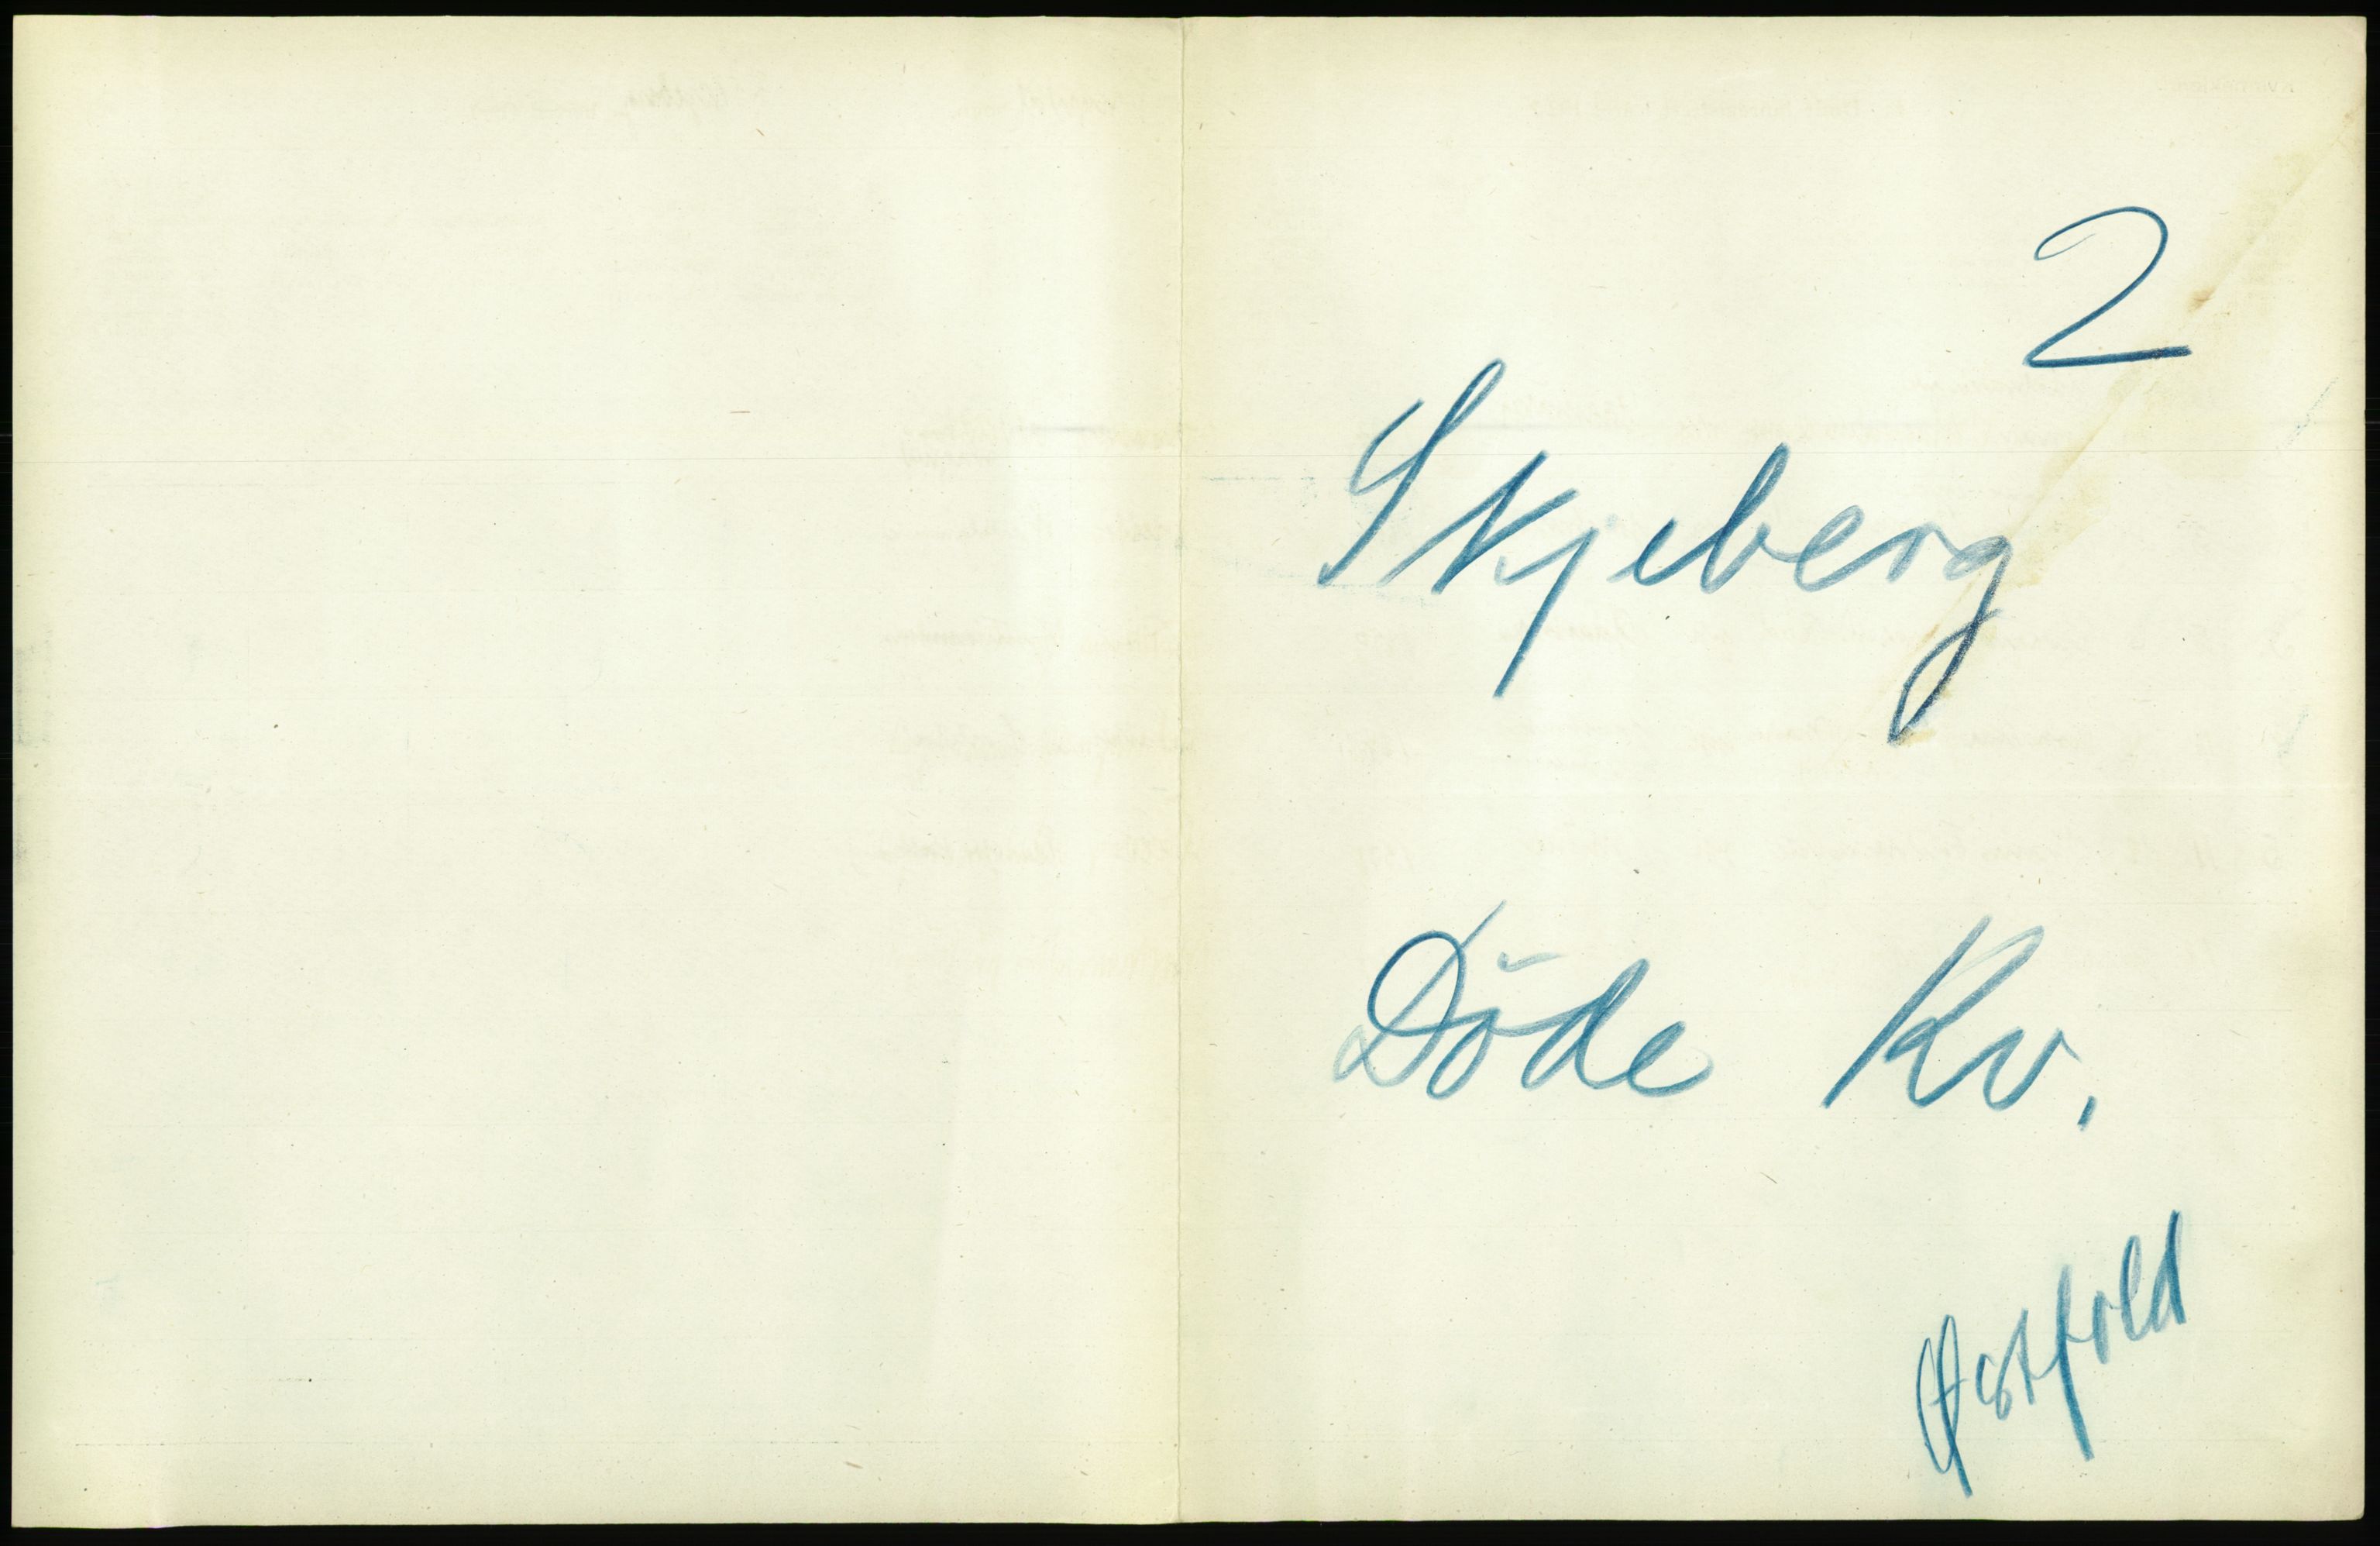 2
Skjeberg
Döde Kv.
Østfold